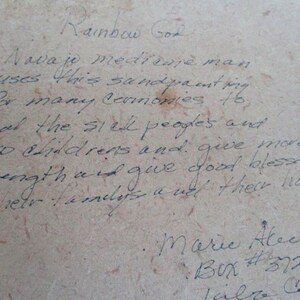 Rainbow God
Navajo medicine man
uses this sandpainting
for many ceromonies to,
the sick peoples and
childrens and give more
and give good bless
familys and their
Marie
Box #